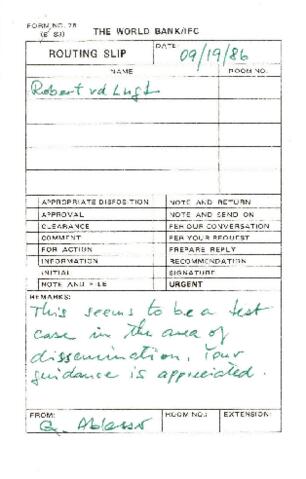 FORM NO. 75
(6-83) THE WORLD BANK/IFC
ROUTING SLIP DATE: 09/19/86
NAME ROOM NO.
Robert vd Lugt
APPROPRIATE DISPOSITION NOTE AND RETURN
APPROVAL NOTE AND SEND ON
CLEARANCE PER OUR CONVERSATION
COMMENT PER YOUR REQUEST
FOR ACTION PREPARE REPLY
INFORMATION RECOMMENDATION
INITIAL SIGNATURE
NOTE AND FILE URGENT
REMARKS:
This seems to be a test
case in the area of
dissemination. Your
guidance is appreciated.
FROM: ROOM NO.: EXTENSION:
G.